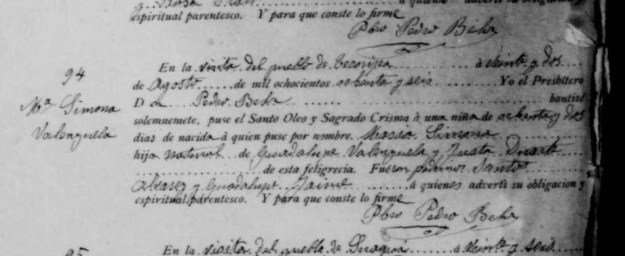 á quien
espiritual parentesco. Y para que conste lo firme
Pbro Pedro Beha
94
En la visita del pueblo de Tecoripa á veinte y dos
de Agosto de mil ochocientos ochenta y seis Yo el Presbítero
Mª Simona
D n Pedro Beha bautisé
Valenzuela
solemnemete, puse el Santo Oleo y Sagrado Crisma á una niña de ochenta y dos
dias de nacida á quien puse por nombre, Maria Simona
hija natural de Guadalupe Valenzuela y Justa Duarte
de esta feligrecia. Fueron padrinos Santos
Alvarez y Guadalupe Jaime á quienes advertí su obligacion y
espiritual parentesco. Y para que conste lo firme
Pbro Pedro Beha
95
En la visita del pueblo de á veinte y seis